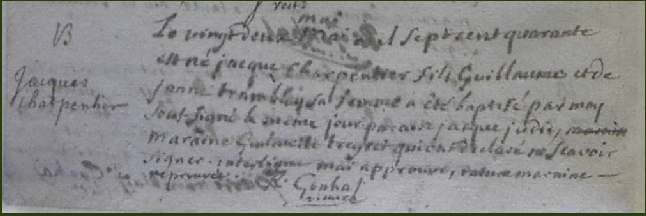 mai
B Le vingt deux Mai mil sept cent quarante
est né jacque Charpentier fils Guillaume et de
Jacques janne tramblig sa femme a été baptisé par moy
Charpentier soussigné le meme jour parain jacque judic,
maraine Guilmette qui ont declaré ne scavoir
signer. interligne mai approuvé, rature maraine
reprouvée. Gonhal
vicaire